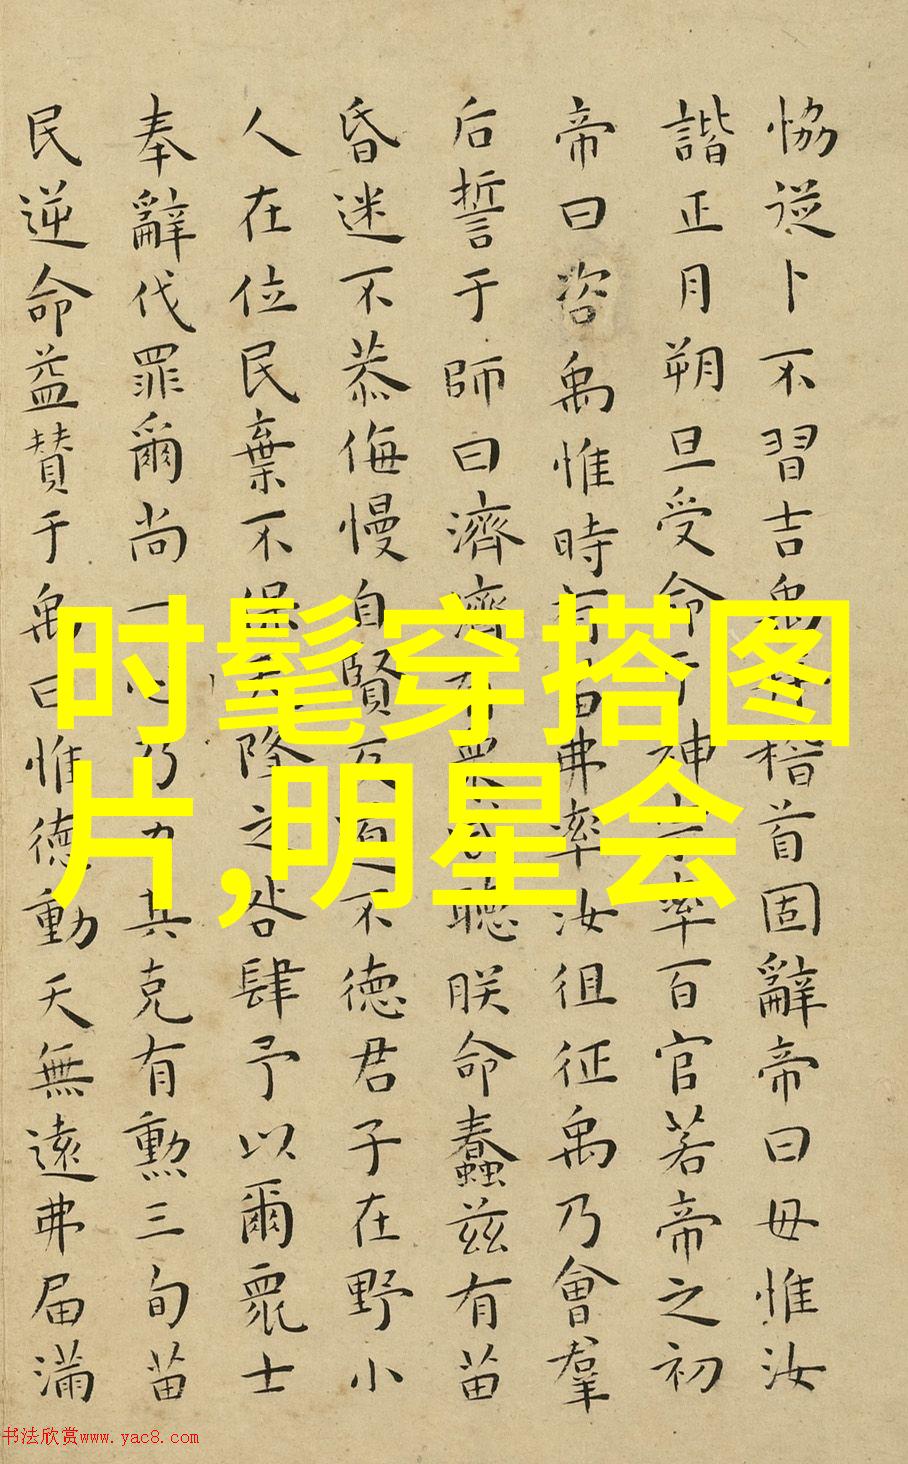 恊從卜不習吉禹拜稽首固辭帝曰毋惟汝
諧正月朔旦受命于神宗率百官若帝之初
帝曰咨禹惟時有苗弗率汝徂征禹乃會羣
后誓于師曰濟濟有眾咸聽朕命蠢兹有苗
昏迷不恭侮慢自賢反道不德君子在野小
人在位民棄不保天降之咎肆予以爾眾士
奉辭伐罪爾尚一心乃力其克有勲三旬苗
民逆命益贊于禹曰惟德動天無遠弗届滿
时髦穿搭图
片,明星会
书法欣赏www.yac8.com